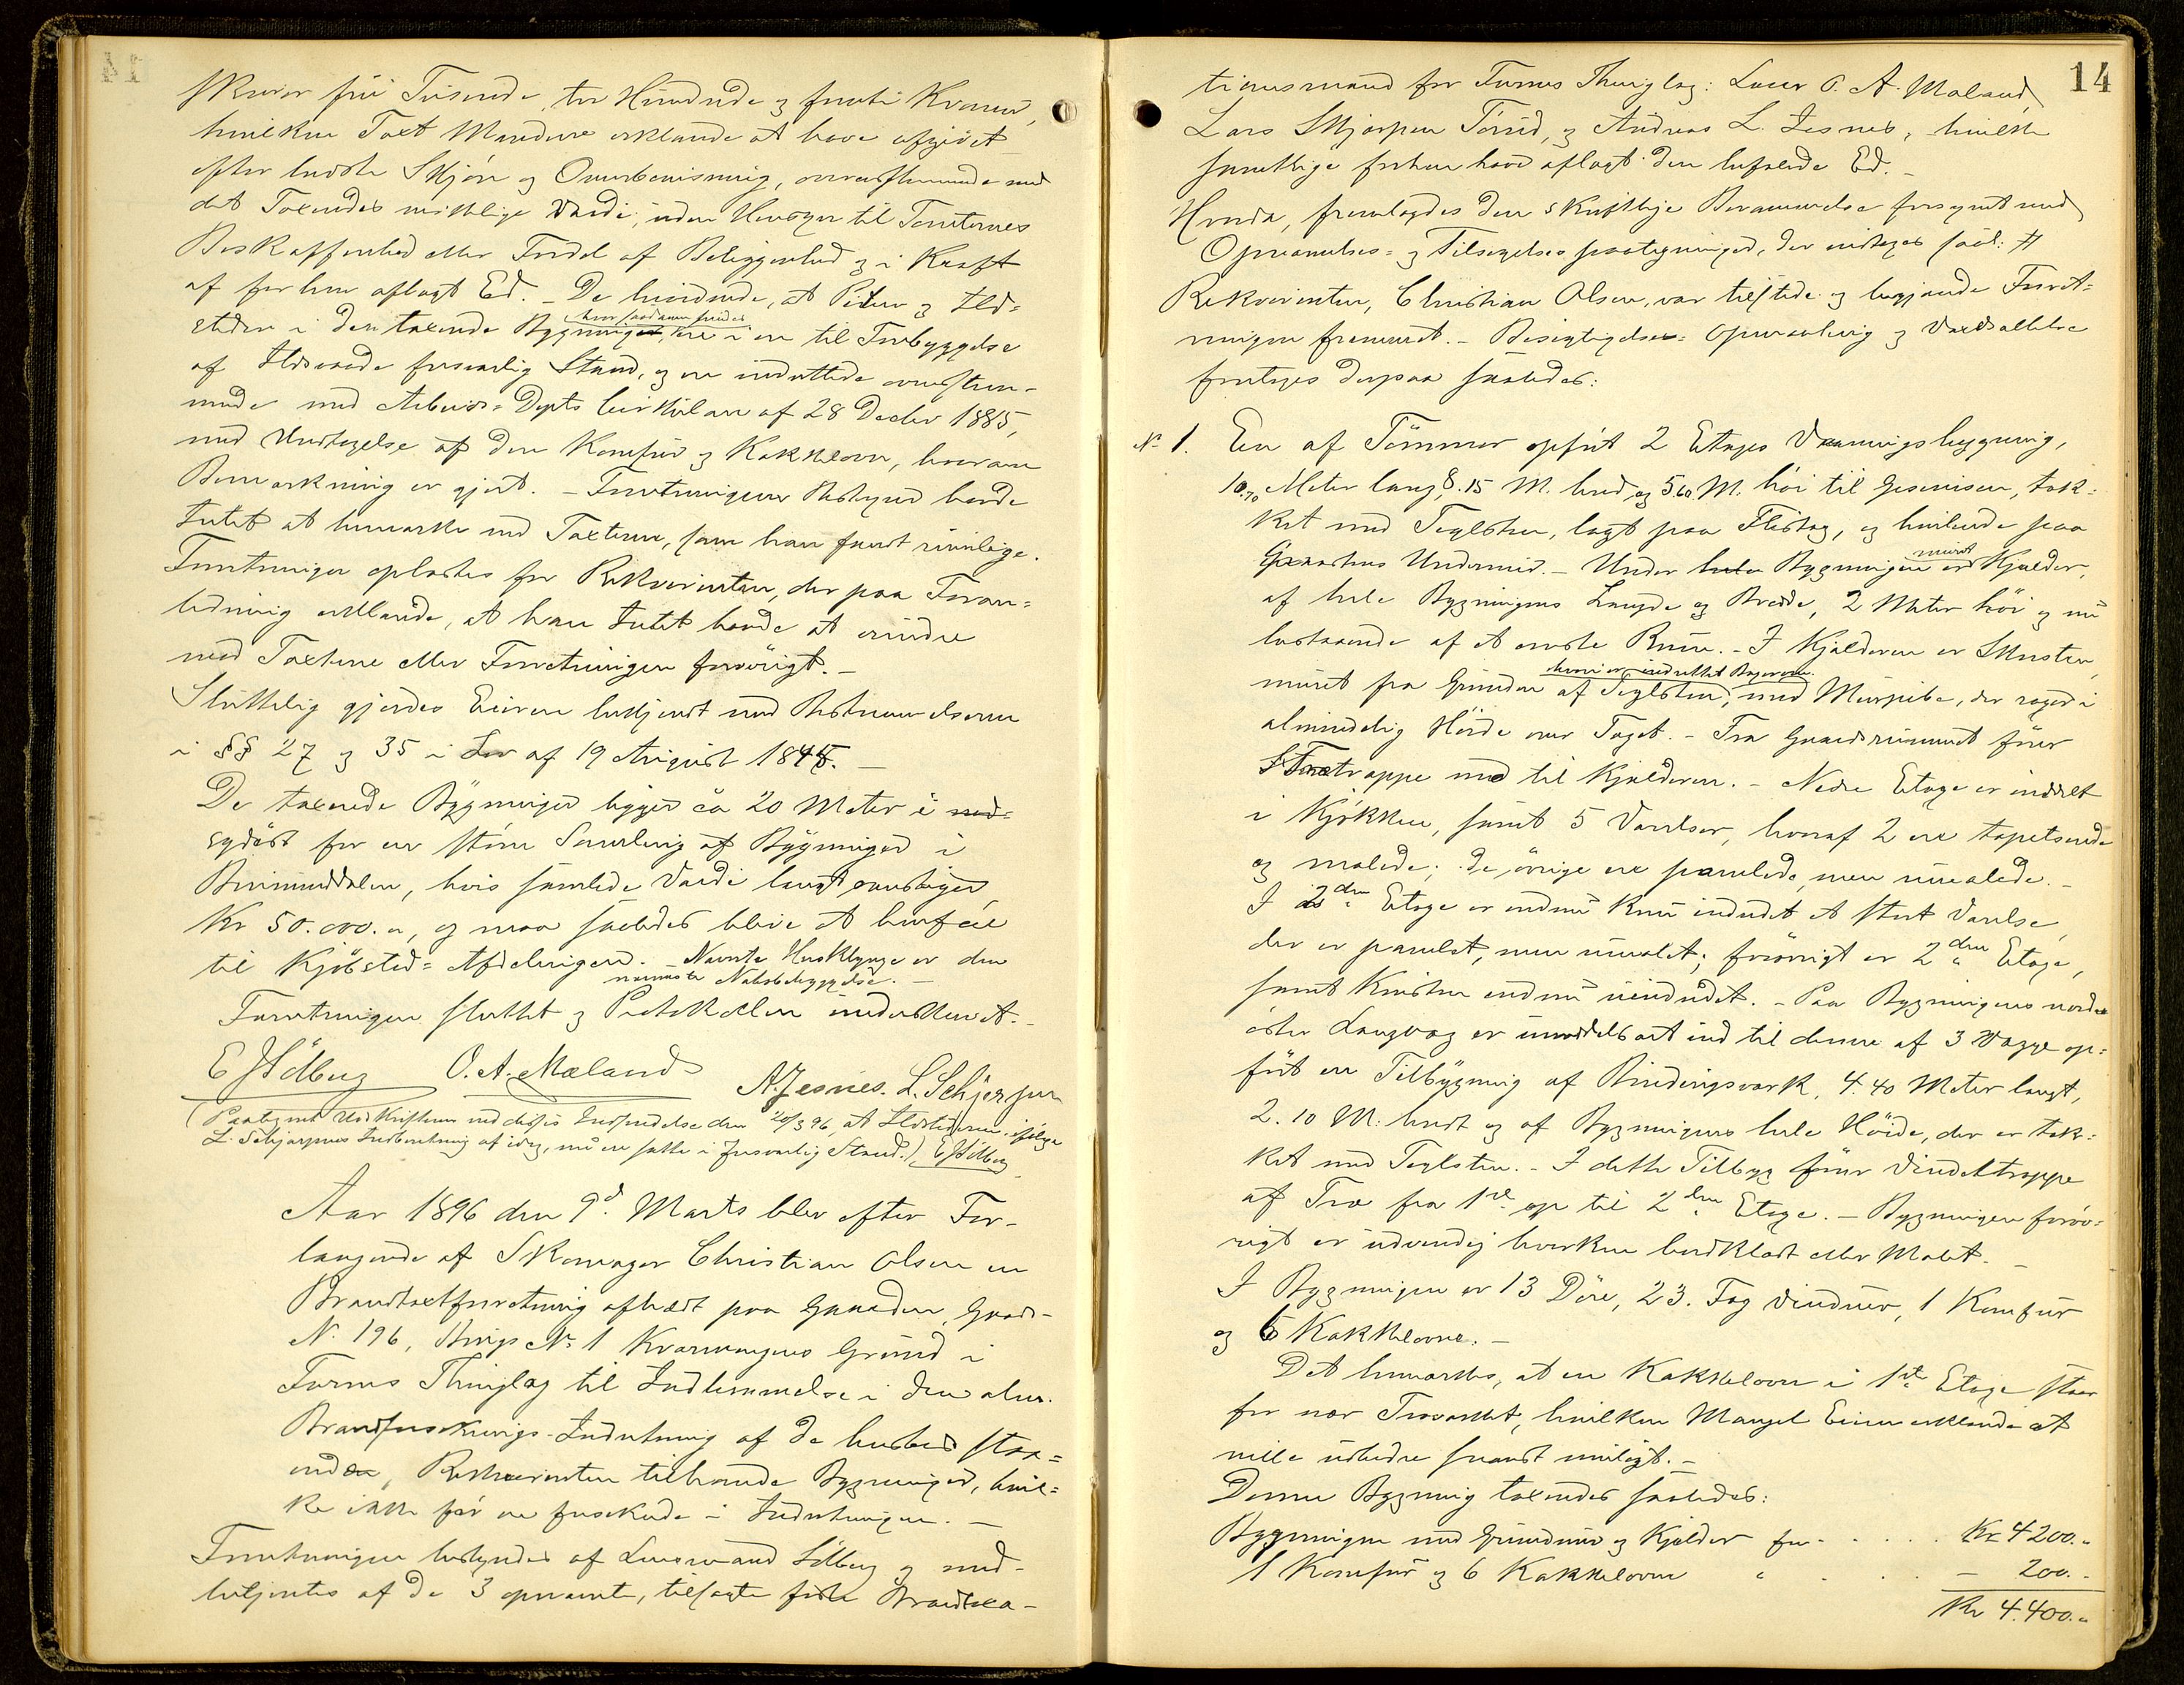 skriver fire Tusende, to Hundrede og femti Kroner,
hvilken Taxt Mændene erklærede at have afgivet
efter bedste Skjøn og Overbevisning, overensstemmende med
det Taxeredes virkelige Værdi, uden Hensyn til Tomternes
Beskaffenhed eller Fordel af Beliggenhed og i Kraft
af forhen aflagt Ed. _ De havde, at Piber og Ild-
hvor saadanne findes
steder i den taxerede Bygninger, ere i en til Forebyggelse
af Ildsvaade forsvarlig Stand, og ere indrettede overensstem-
mende med Arbeids-Depts Cirkulære af 28 Decbr 1885,
med Undtagelse af den Komfur og Kakkelovn, hvorom
Bemærkning er gjort. _ Forretningens Bestyrer havde
Intet at bemærke ved Taxterne, som han fandt rimelige.
Forretningen oplæstes for Rekvirenten, der paa Foran-
ledning erklærede, at han Intet havde at erindre
ved Taxterne eller Forretningen forøvrigt. _
Sluttelig gjordes Eieren bekjendt med Bestemmelserne
i §§ 27 og 35 i Lov af 19 August 1845. _
De taxerede Bygninger ligger ca 20 Meter i
sydøst for en større Samling af Bygninger i
, hvis samlede Værdi langt overstiger
Kr 50.000.", og maa saaledes blive at henføre
til Kjøbsted-Afdelingen. _ Nævnte Husklynge er den
nærmeste Nabobebyggelse. _
Forretningen sluttet og Protokollen underskrevet. _
E Sølberg O. A. Mæland A. Jesnes. L. Schjerpen
(Paategnet Udskriften ved dens Indsendelse den 20/3 96, at Ildstederne ifølge
L. Schjerpens Indberetning af idag, nu ere satte i forsvarlig Stand.) E Sølberg
Aar 1896 den 9d. Marts blev efter For-
langende af Skomager Christian Olsen en
Brandtaxtforretning afholdt paa Gaarden, Gaards-
No. 196, Brugs No 1 Kværnengens Grund i
Furnes Thinglag til Indlemmelse i den alm.
Brandforsikrings-Indretning af de herstede staa-
ende, Rekvirenten tilhørende Bygninger, hvil-
ke ikke før ere forsikrede i Indretningen. _
Forretningen bestyredes af Lensmand Sølberg og med-
betjentes af de 3 opnævnte, tilsagte faste Brandtaxa-
14
tionsmænd for Furnes Thinglag: Lars O. A. Mæland,
Lars Skjærpen Tørud, og Andreas L. Jesnes, hvilke
samtlige forhen have aflagt den befalede Ed. _
Herda, fremlagdes den skriftlige Berammelse forsynet med
Opnævnelses- og Tilsigelses paategninger, der indtages saal: #
Rekvirenten, Christian Olsen, var tilstede og begjærede Forret-
ningen fremmet. _ Besigtigelse, Opmaaling og Værdsættelse
foretoges derpaa saaledes:
No 1. En af Tømmer opført 2 Etages Vaaningsbygning,
10.70 Meter lang, 8.15 M. bred og 5.60 M. høi til Gesimsen, tæk-
ket med Teglsten, lagt paa Flistag, og hvilende paa
Graastens Undermur. _ Under hele Bygningen er muret Kjælder,
af hele Bygningens Længde og Bredde, 2 Meter høi og nu
bestaaende af et eneste Rum. _ I Kjælderen er Skorsten,
hvori er indrettet Bagerovn.
muret fra Grunden af Teglsten, med Murpibe, der rager i
almindelig Høide over Taget. _ Fra Gaardsrummet fører
Stentrappe ned til Kjælderen. _ Nedre Etage er inddelt
i Kjøkken, samt 5 Værelser, hvoraf 2 ere tapetserede
og malede; de øvrige ere panelede, men umalede. _
I 2den Etage er endnu kun indredet et stort Værelse,
der er panelet, men umalet; forøvrigt er 2den Etage,
samt Kvisten endnu uindredet. _ Paa Bygningens nord-
østre Langvæg er umiddelbart ind til denne af 3 Vægge op-
ført en Tilbygning af Bindingsværk, 4.40 Meter langt,
2.10 M. bredt og af Bygningens hele Høide, der er tæk-
ket med Teglsten. _ I dette Tilbyg fører Vindeltrappe
af Træ fra 1ste op til 2den Etage. _ Bygningen forøv-
rigt er udvendig hverken bordklædt eller Malet. _
I Bygningen er 13 Døre, 23. Fag Vinduer, 1 Komfur
og 6 Kakkelovne. _
Det bemærkes, at en Kakkelovn i 1ste Etage staar
for nær Træværket, hvilken Mangel Eieren erklærede at
ville udbedre snarest muligt. _
Denne Bygning taxeredes saaledes:
Bygningen med Grundmur og Kjælder for . . . . Kr 4200."
1 Komfur og 6 Kakkelovne " . . . _ 200."
Kr 4.400."